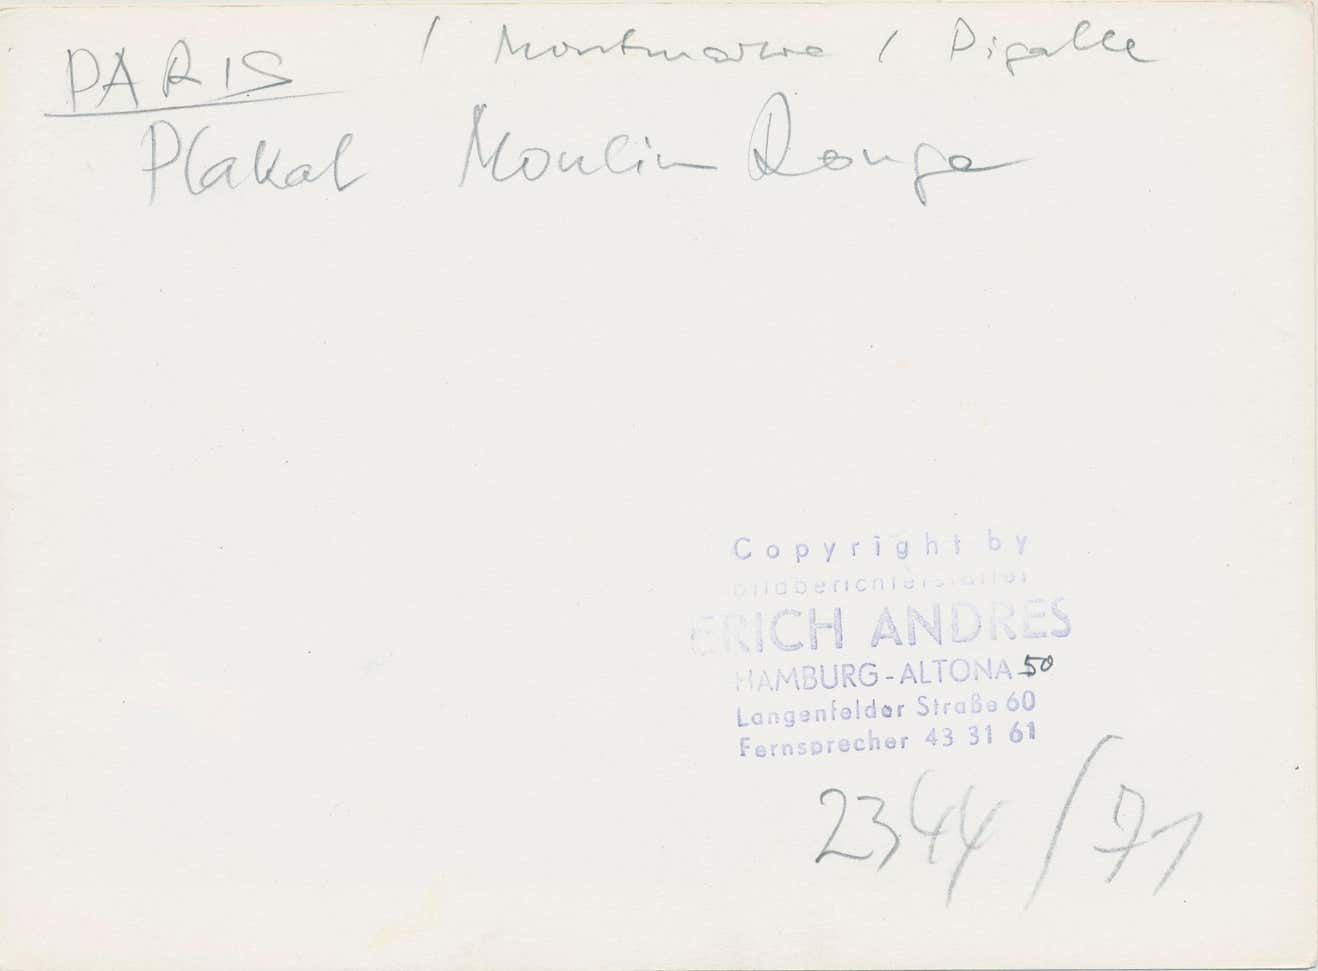 PARIS / Montmartre / Pigalle
Plakat Moulin Rouge
Copyright by
bildberichterstatter
ERICH ANDRES
HAMBURG-ALTONA 50
Langenfelder Straße 60
Fernsprecher 43 31 61
2344/71